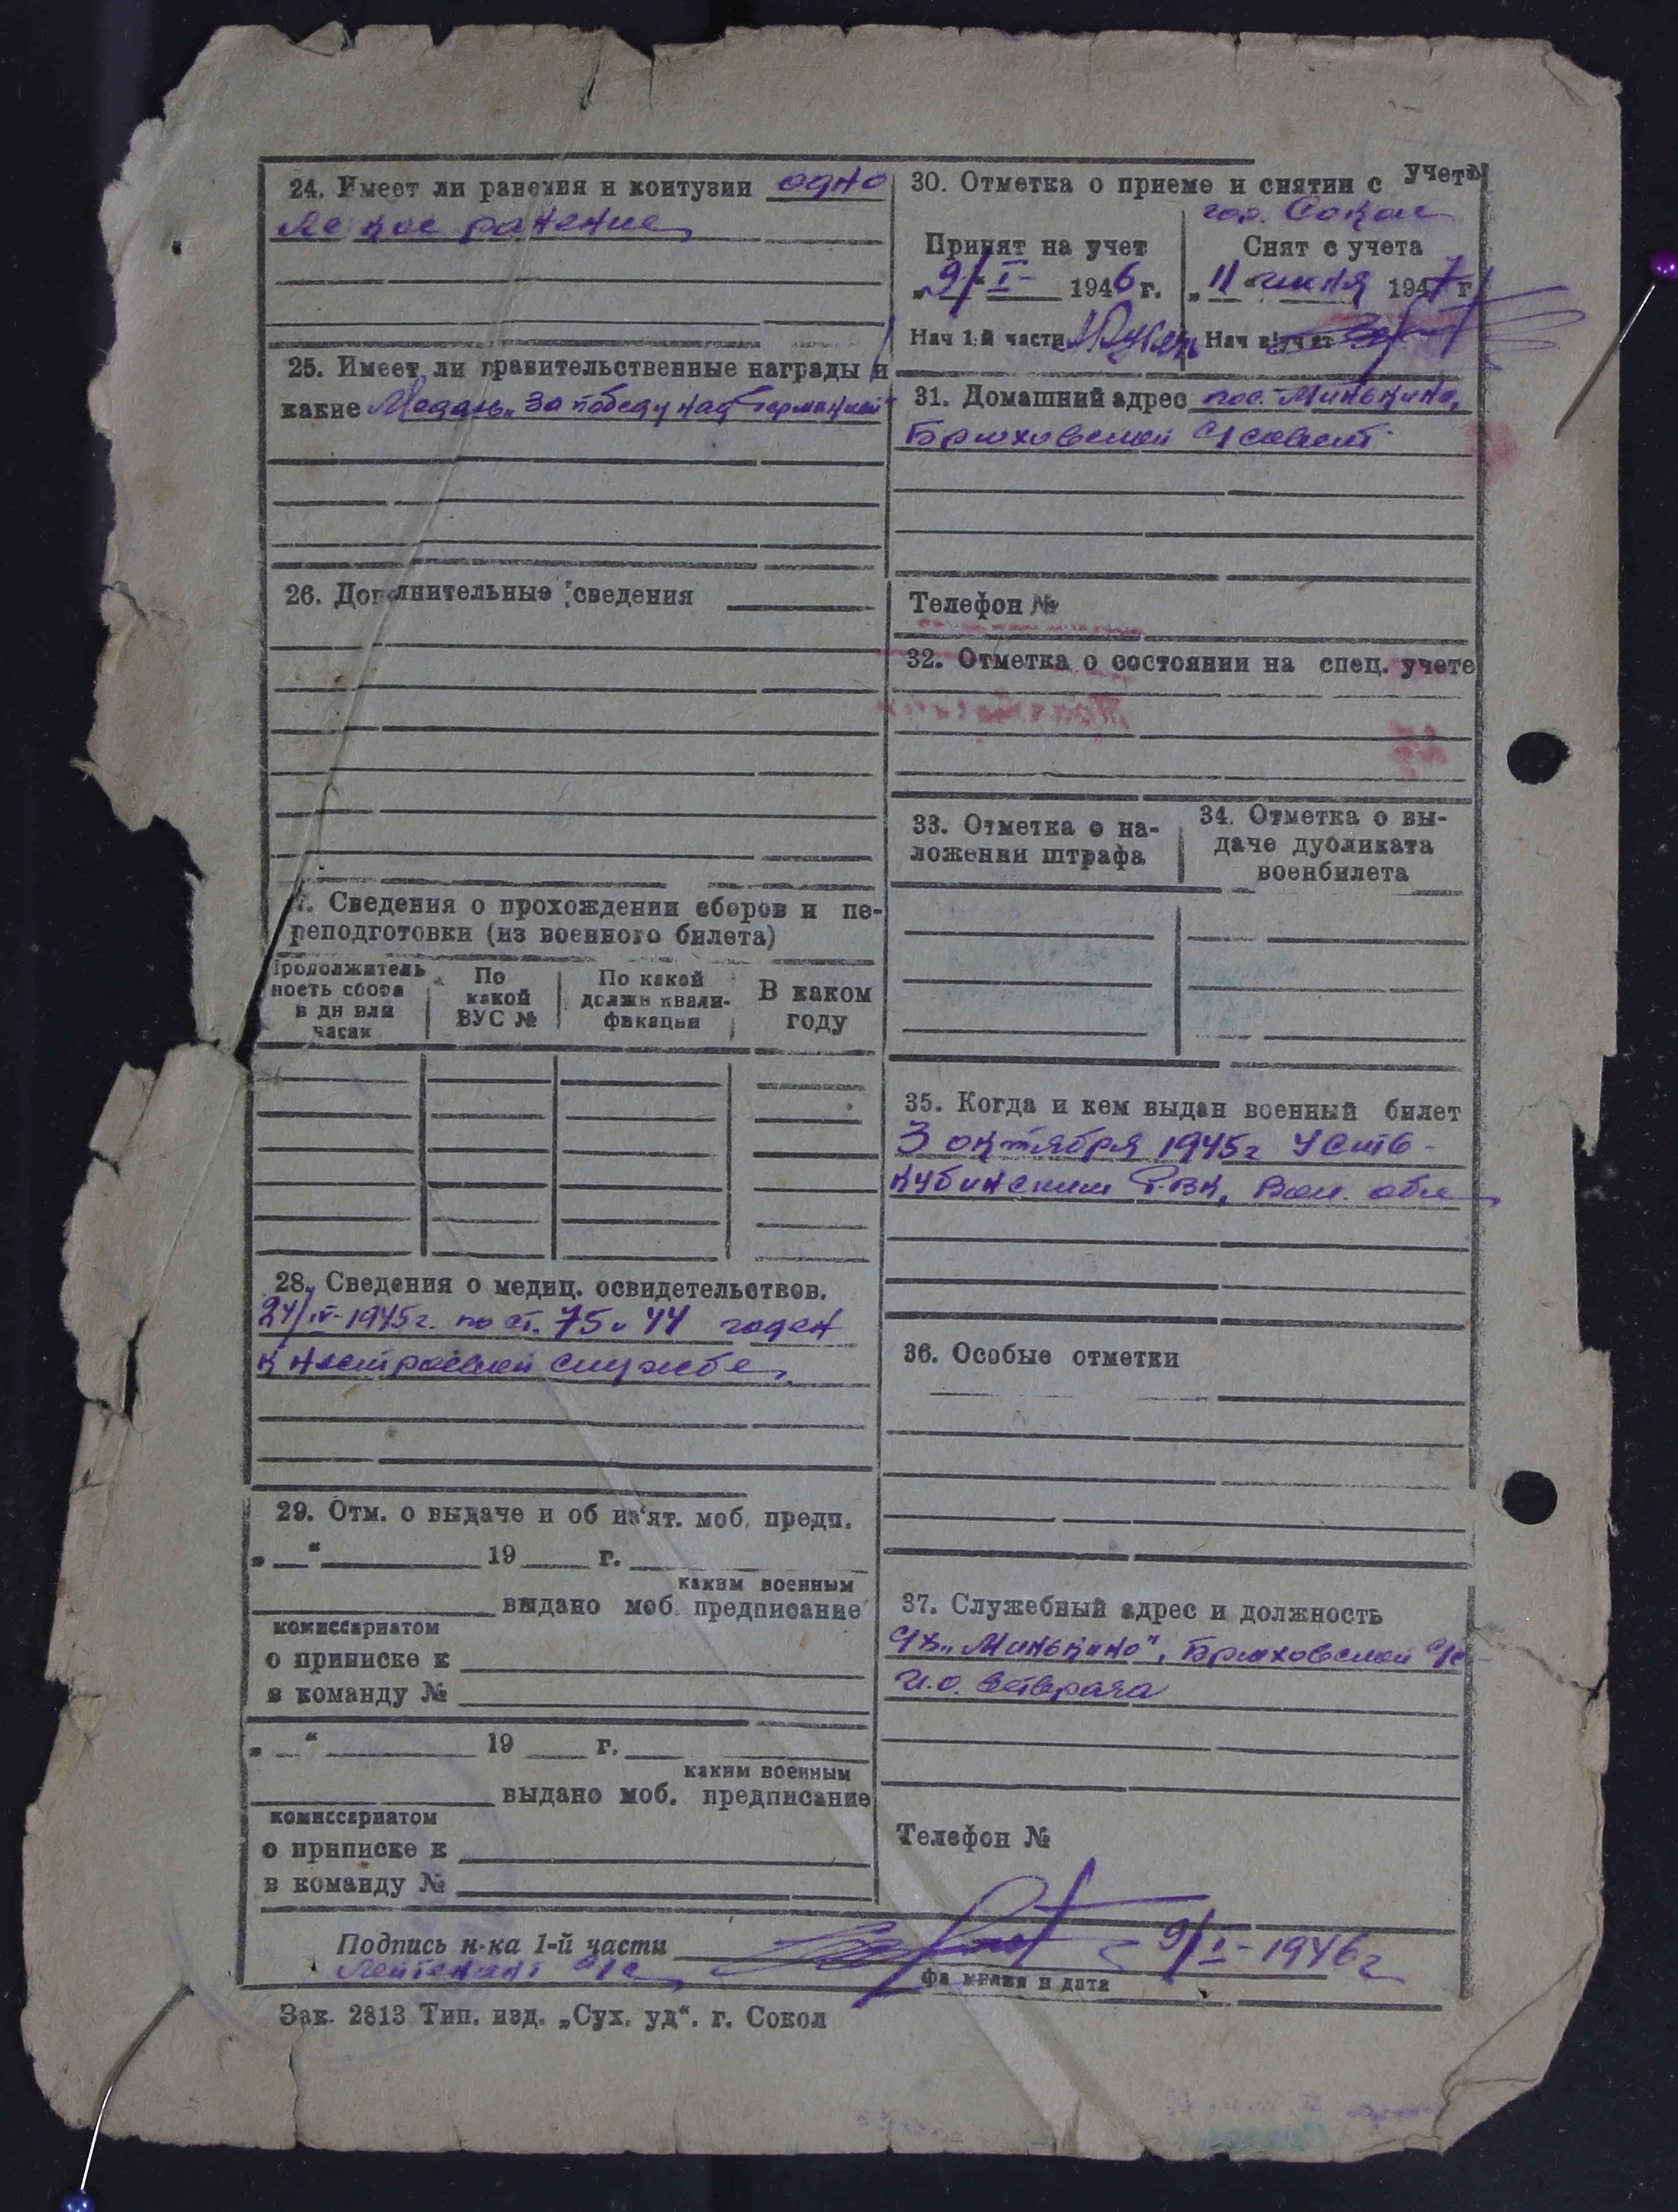 24. Имеет ли ранения и контузии одно
легкое ранение
25. Имеет ли правительственные награды и
какие Медаль „За победу над Германией"
26. Дополнительные сведения
7. Сведения о прохождении сборов и пе-
реподготовки (из военного билета)
Продолжитель
ность сбора
в дн или
часах
По
какой
ВУС №
По какой
должн квали-
фикации
В каком
году
28. Сведения о медиц. освидетельствов.
24/IV-1945г. по ст. 75 и 44 годен
к нестроевой службе
29. Отм. о выдаче и об из'ят. моб. предп.
„ “ 19 г.
каким военным
выдано моб. предписание
комиссариатом
о приписке к
в команду №
„ “ 19 г.
каким военным
выдано моб. предписание
комиссариатом
о приписке к
в команду №
30. Отметка о приеме и снятии с учета
гор. Сокол
Принят на учет
„9/“ I- 1946 г.
Нач 1-й части
Снят с учета
„11“ июня 1947 г
Нач в/учет
31. Домашний адрес пос. Минькино,
Брюховской с/совет
Телефон №
32. Отметка о состоянии на спец. учете
33. Отметка о на-
ложении штрафа
34. Отметка о вы-
даче дубликата
военбилета
35. Когда и кем выдан военный билет
3 октября 1945г Усть-
Кубинским РВК, Вол. обл
36. Особые отметки
37. Служебный адрес и должность
„Минькино", Брюховской с/с
И.о. ветврача
Телефон №
Подпись н-ка 1-й части 9/I-1946г
Лейтенант а/с
фамилия и дата
Зак. 2813 Тип. изд. „Сух. уд“. г. Сокол